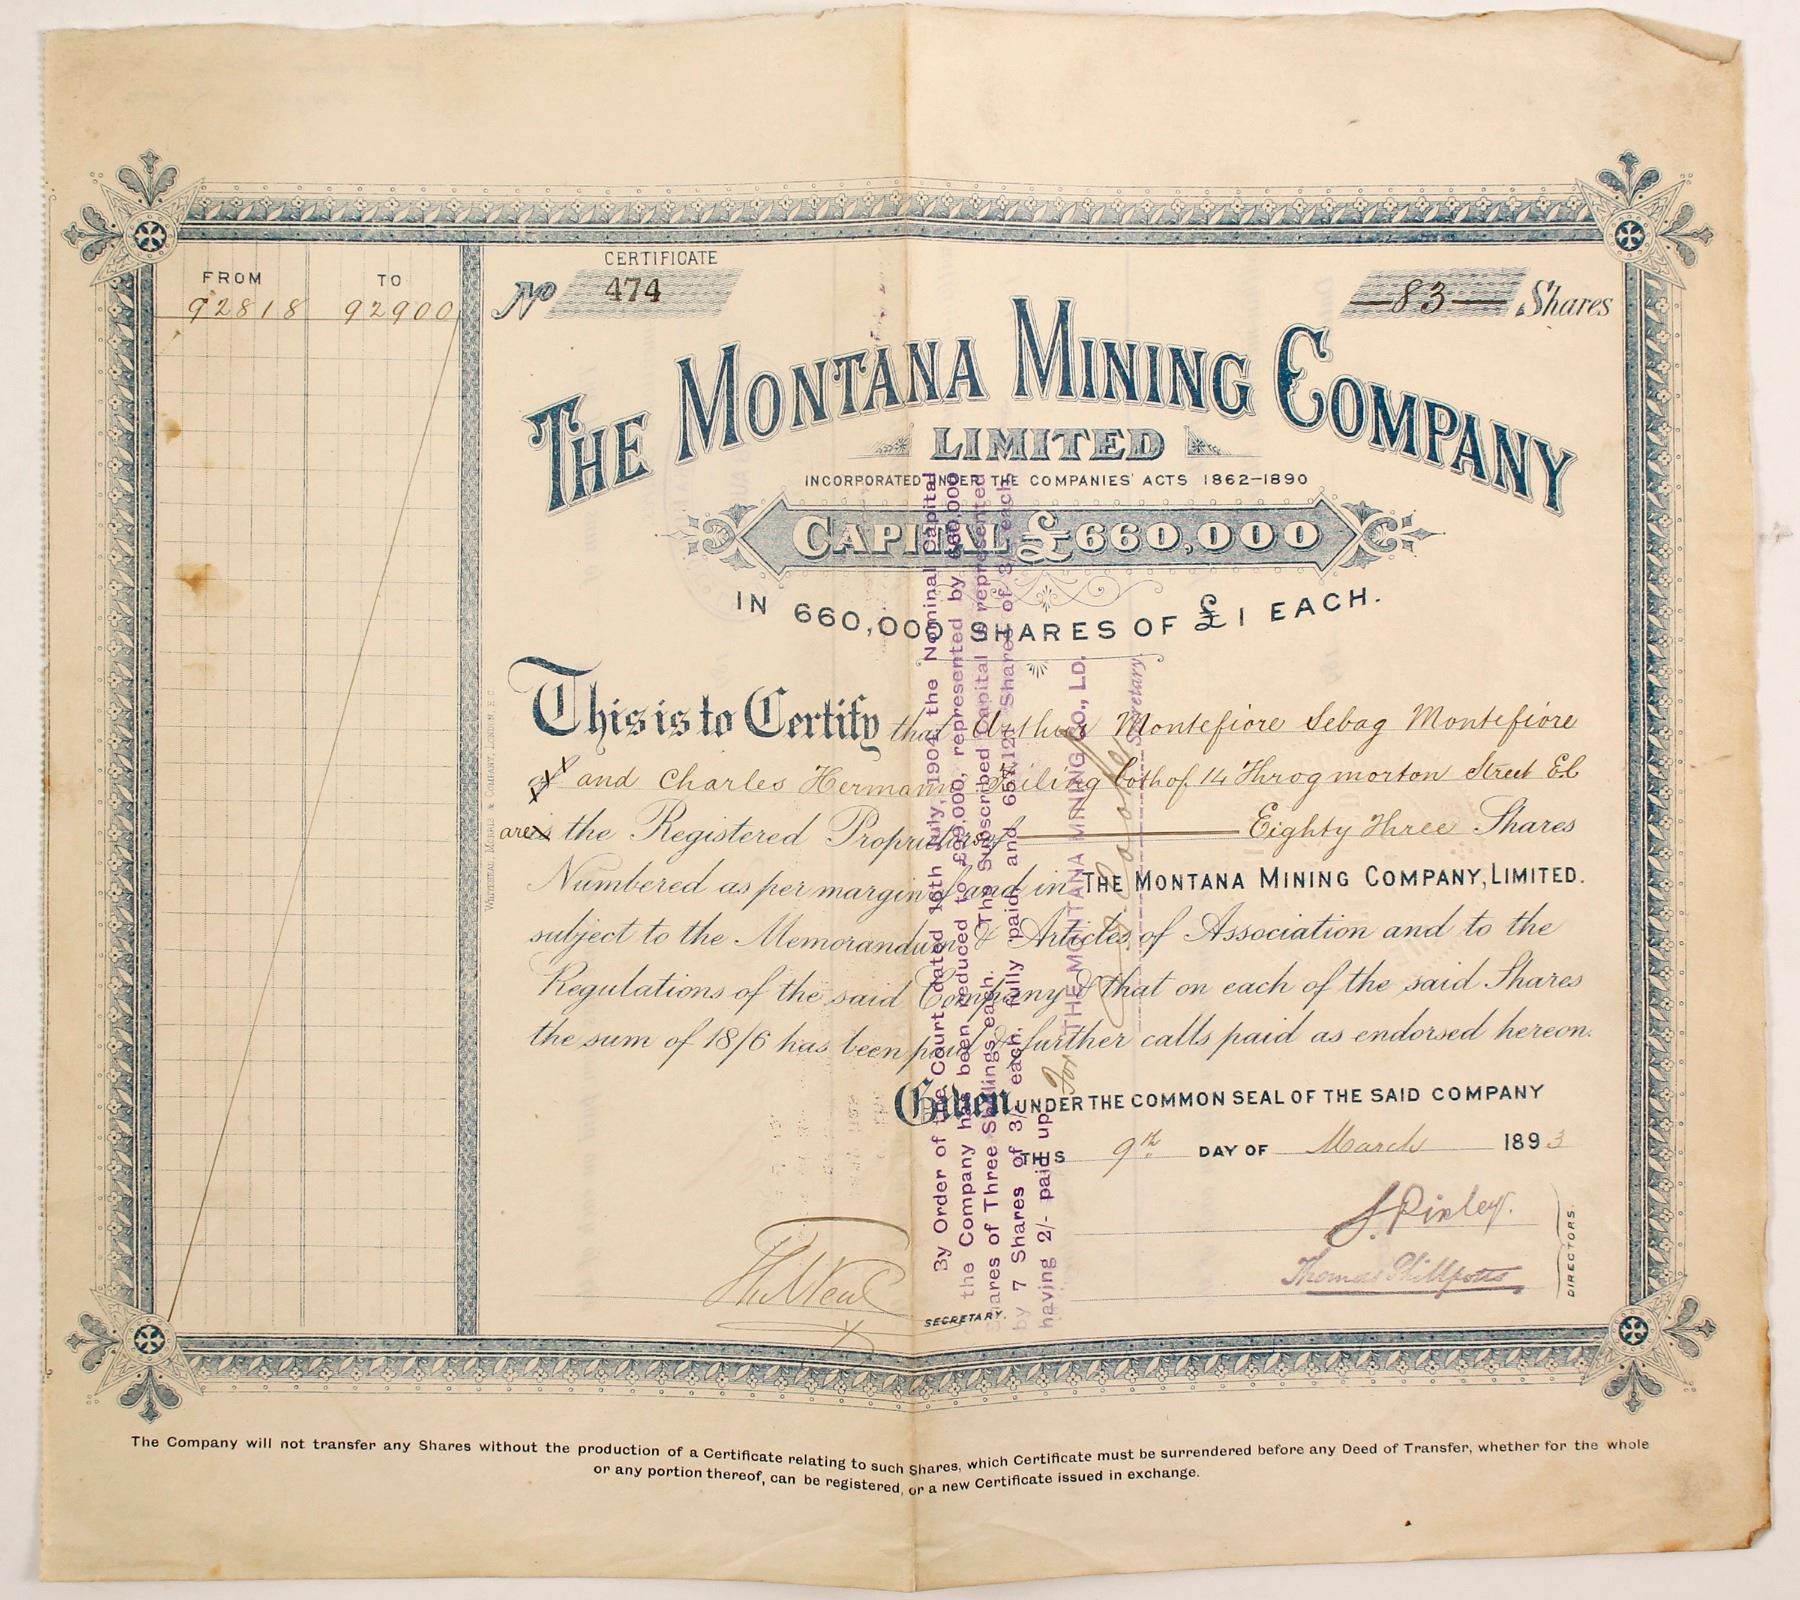 FROM TO
92818 92900
CERTIFICATE
No 474
83 Shares
THE MONTANA MINING COMPANY
LIMITED
INCORPORATED UNDER THE COMPANIES' ACTS 1862-1890
CAPITAL £660,000
IN 660,000 SHARES OF £1 EACH.
This is to Certify that Arthur Montefiore Sebag Montefiore
and Charles Hermann both of 14 Throgmorton Street EC
are the Registered Proprietors of Eighty Three Shares
Numbered as per margin and in THE MONTANA MINING COMPANY, LIMITED.
subject to the Memorandum & Articles of Association and to the
Regulations of the said Company & that on each of the said Shares
the sum of 18/6 has been paid & further calls paid as endorsed hereon.
Given UNDER THE COMMON SEAL OF THE SAID COMPANY
THIS 9th DAY OF March 1893
J. Pixley.
Thomas Phillpotts
DIRECTORS.
SECRETARY.
WHITEHEAD, MORRIS & COMPANY, LONDON, E C
By Order of the Court, dated 16th July, 1904, the Nominal Capital
the Company has been reduced to £99,000, represented by 660,000
Shares of Three Shillings each. The Subscribed Capital is represented
by 7 Shares of 3/- each, fully paid, and Shares of 3/- each
having 2/- paid up.
For THE MONTANA MINING CO., LD.
Secretary.
The Company will not transfer any Shares without the production of a Certificate relating to such Shares, which Certificate must be surrendered before any Deed of Transfer, whether for the whole
or any portion thereof, can be registered, or a new Certificate issued in exchange.